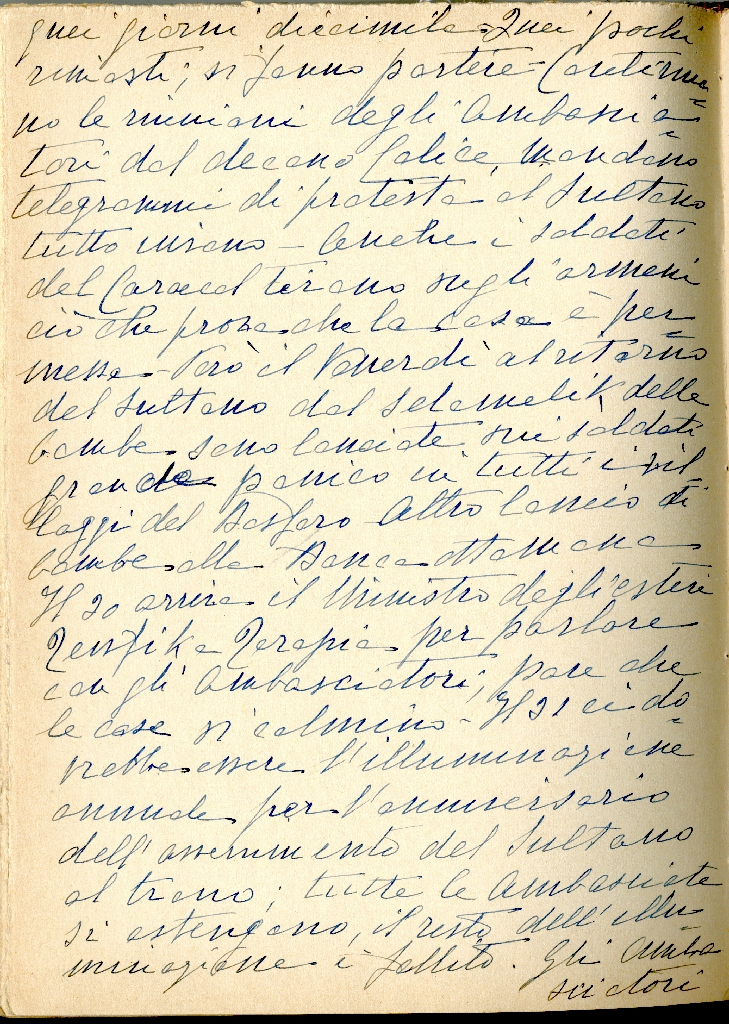 quei giorni diecimila. Quei pochi
rimasti, si fanno partire - Continua=
no le riunioni degli Ambascia=
tori dal decano Calice, mandano
telegrammi di protesta al Sultano
tutto invano - Anche i soldati
del Caracol tirano sugli armeni
ciò che prova che la cosa è per=
messa - Però il Venerdì al ritorno
del Sultano dal Selamelik delle
bombe sono lanciate sui soldati
grande panico in tutti i vil=
laggi del Bosforo - Altro lancio di
bombe alla Banca ottomana
Il 30 arriva il Ministro degli esteri
Tewfik a Terapia per parlare
con gli Ambasciatori, pare che
le cose si calmino - Il 31 ci do=
vrebbe essere l'illuminazione
annuale per l'anniversario
dell'assunmento del Sultano
al trono; tutte le Ambasciate
si astengono, il resto dell'illu=
minazione è fallito. Gli Amba
sciatori